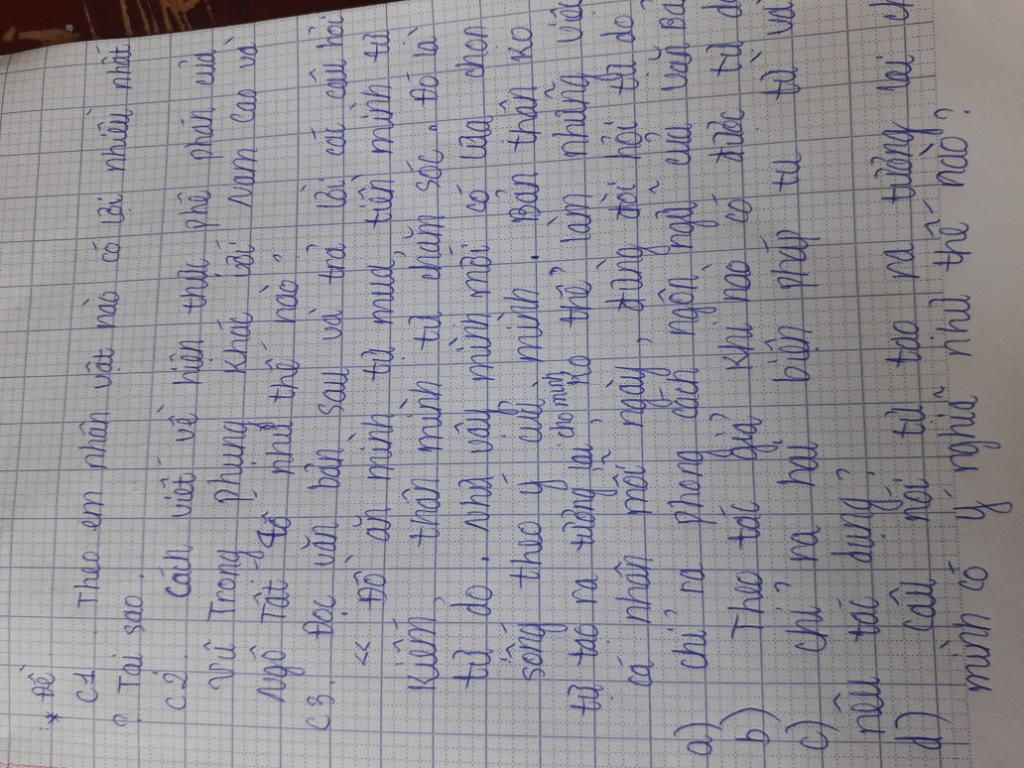 * Đề
C1. Theo em nhân vật nào có lời nhiều nhất
? Tại sao.
C2. Cách viết về hiện thực phê phán của
Vũ Trọng Phụng khác với Nam Cao và
Ngô Tất Tố như thế nào?
C3. Đọc văn bản sau và trả lời các câu hỏi
<< Đồ ăn mình tự mua, tiền mình tự
kiếm, thân mình tự chăm sóc. Đó là
tự do. Như vậy mình mới có lựa chọn
sống theo ý của mình. Bản thân ko
tự tạo ra tương lai cho mình, ko thể làm những việc
cá nhân mỗi ngày, đừng đòi hỏi tự do
a) chỉ ra phong cách ngôn ngữ của văn bả
b) Theo tác giả khi nào có được tự do
c) chỉ ra hai biện pháp tu từ và
nêu tác dụng?
d) câu nói tự tạo ra tương lai
mình có ý nghĩa như thế nào?